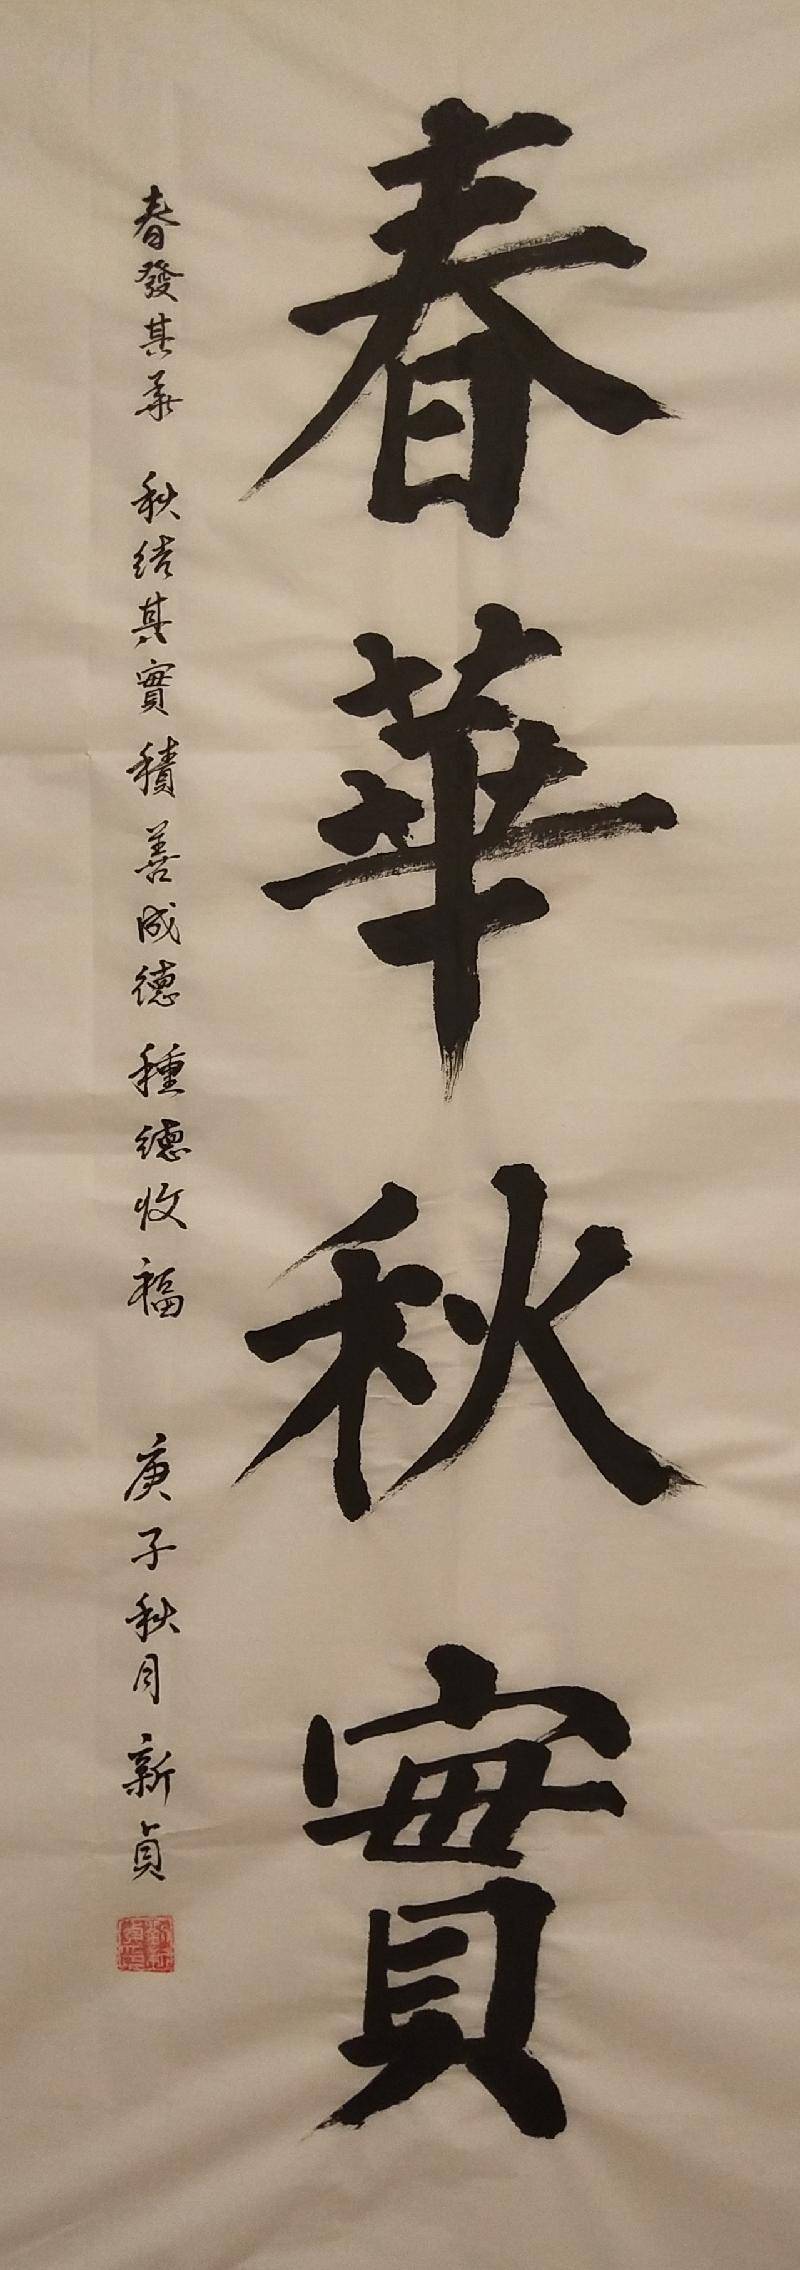 春華秋實
春發其華 秋结其實 積善成德 種德收福 庚子秋月 新貞